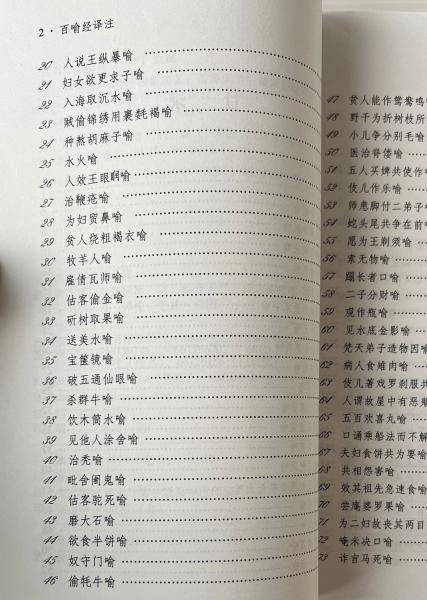 2 · 百喻经译注
20 人说王纵暴喻
21 妇女欲更求子喻
22 入海取沉水喻
23 贼偷锦绣用裹氀褐喻
24 种熬胡麻子喻
25 水火喻
26 人效王眼瞤喻
27 治鞭疮喻
28 为妇贸鼻喻
29 贫人烧粗褐衣喻
30 牧羊人喻
31 雇倩瓦师喻
32 估客偷金喻
33 斫树取果喻
34 送美水喻
35 宝箧镜喻
36 破五通仙眼喻
37 杀群牛喻
38 饮木筒水喻
39 见他人涂舍喻
40 治秃喻
41 毗舍阇鬼喻
42 估客驼死喻
43 磨大石喻
44 欲食半饼喻
45 奴守门喻
46 偷牦牛喻
47 贫人能作鸳鸯鸣
48 野干为折树枝所
49 小儿争分别毛喻
50 医治脊偻喻
51 五人买婢共使作
52 伎儿作乐喻
53 师患脚付二弟子
54 蛇头尾共争在前
55 愿为王剃须喻
56 索无物喻
57 蹋长者口喻
58 二子分财喻
59 观作瓶喻
60 见水底金影喻
61 梵天弟子造物因喻
62 病人食雉肉喻
63 伎儿著戏罗刹服共
64 人谓故屋中有恶鬼
65 五百欢喜丸喻
66 口诵乘船法而不解
67 夫妇食饼共为要喻
68 共相怨害喻
69 效其祖先急速食喻
70 尝庵婆罗果喻
71 为二妇故丧其两目
72 唵米决口喻
73 诈言马死喻